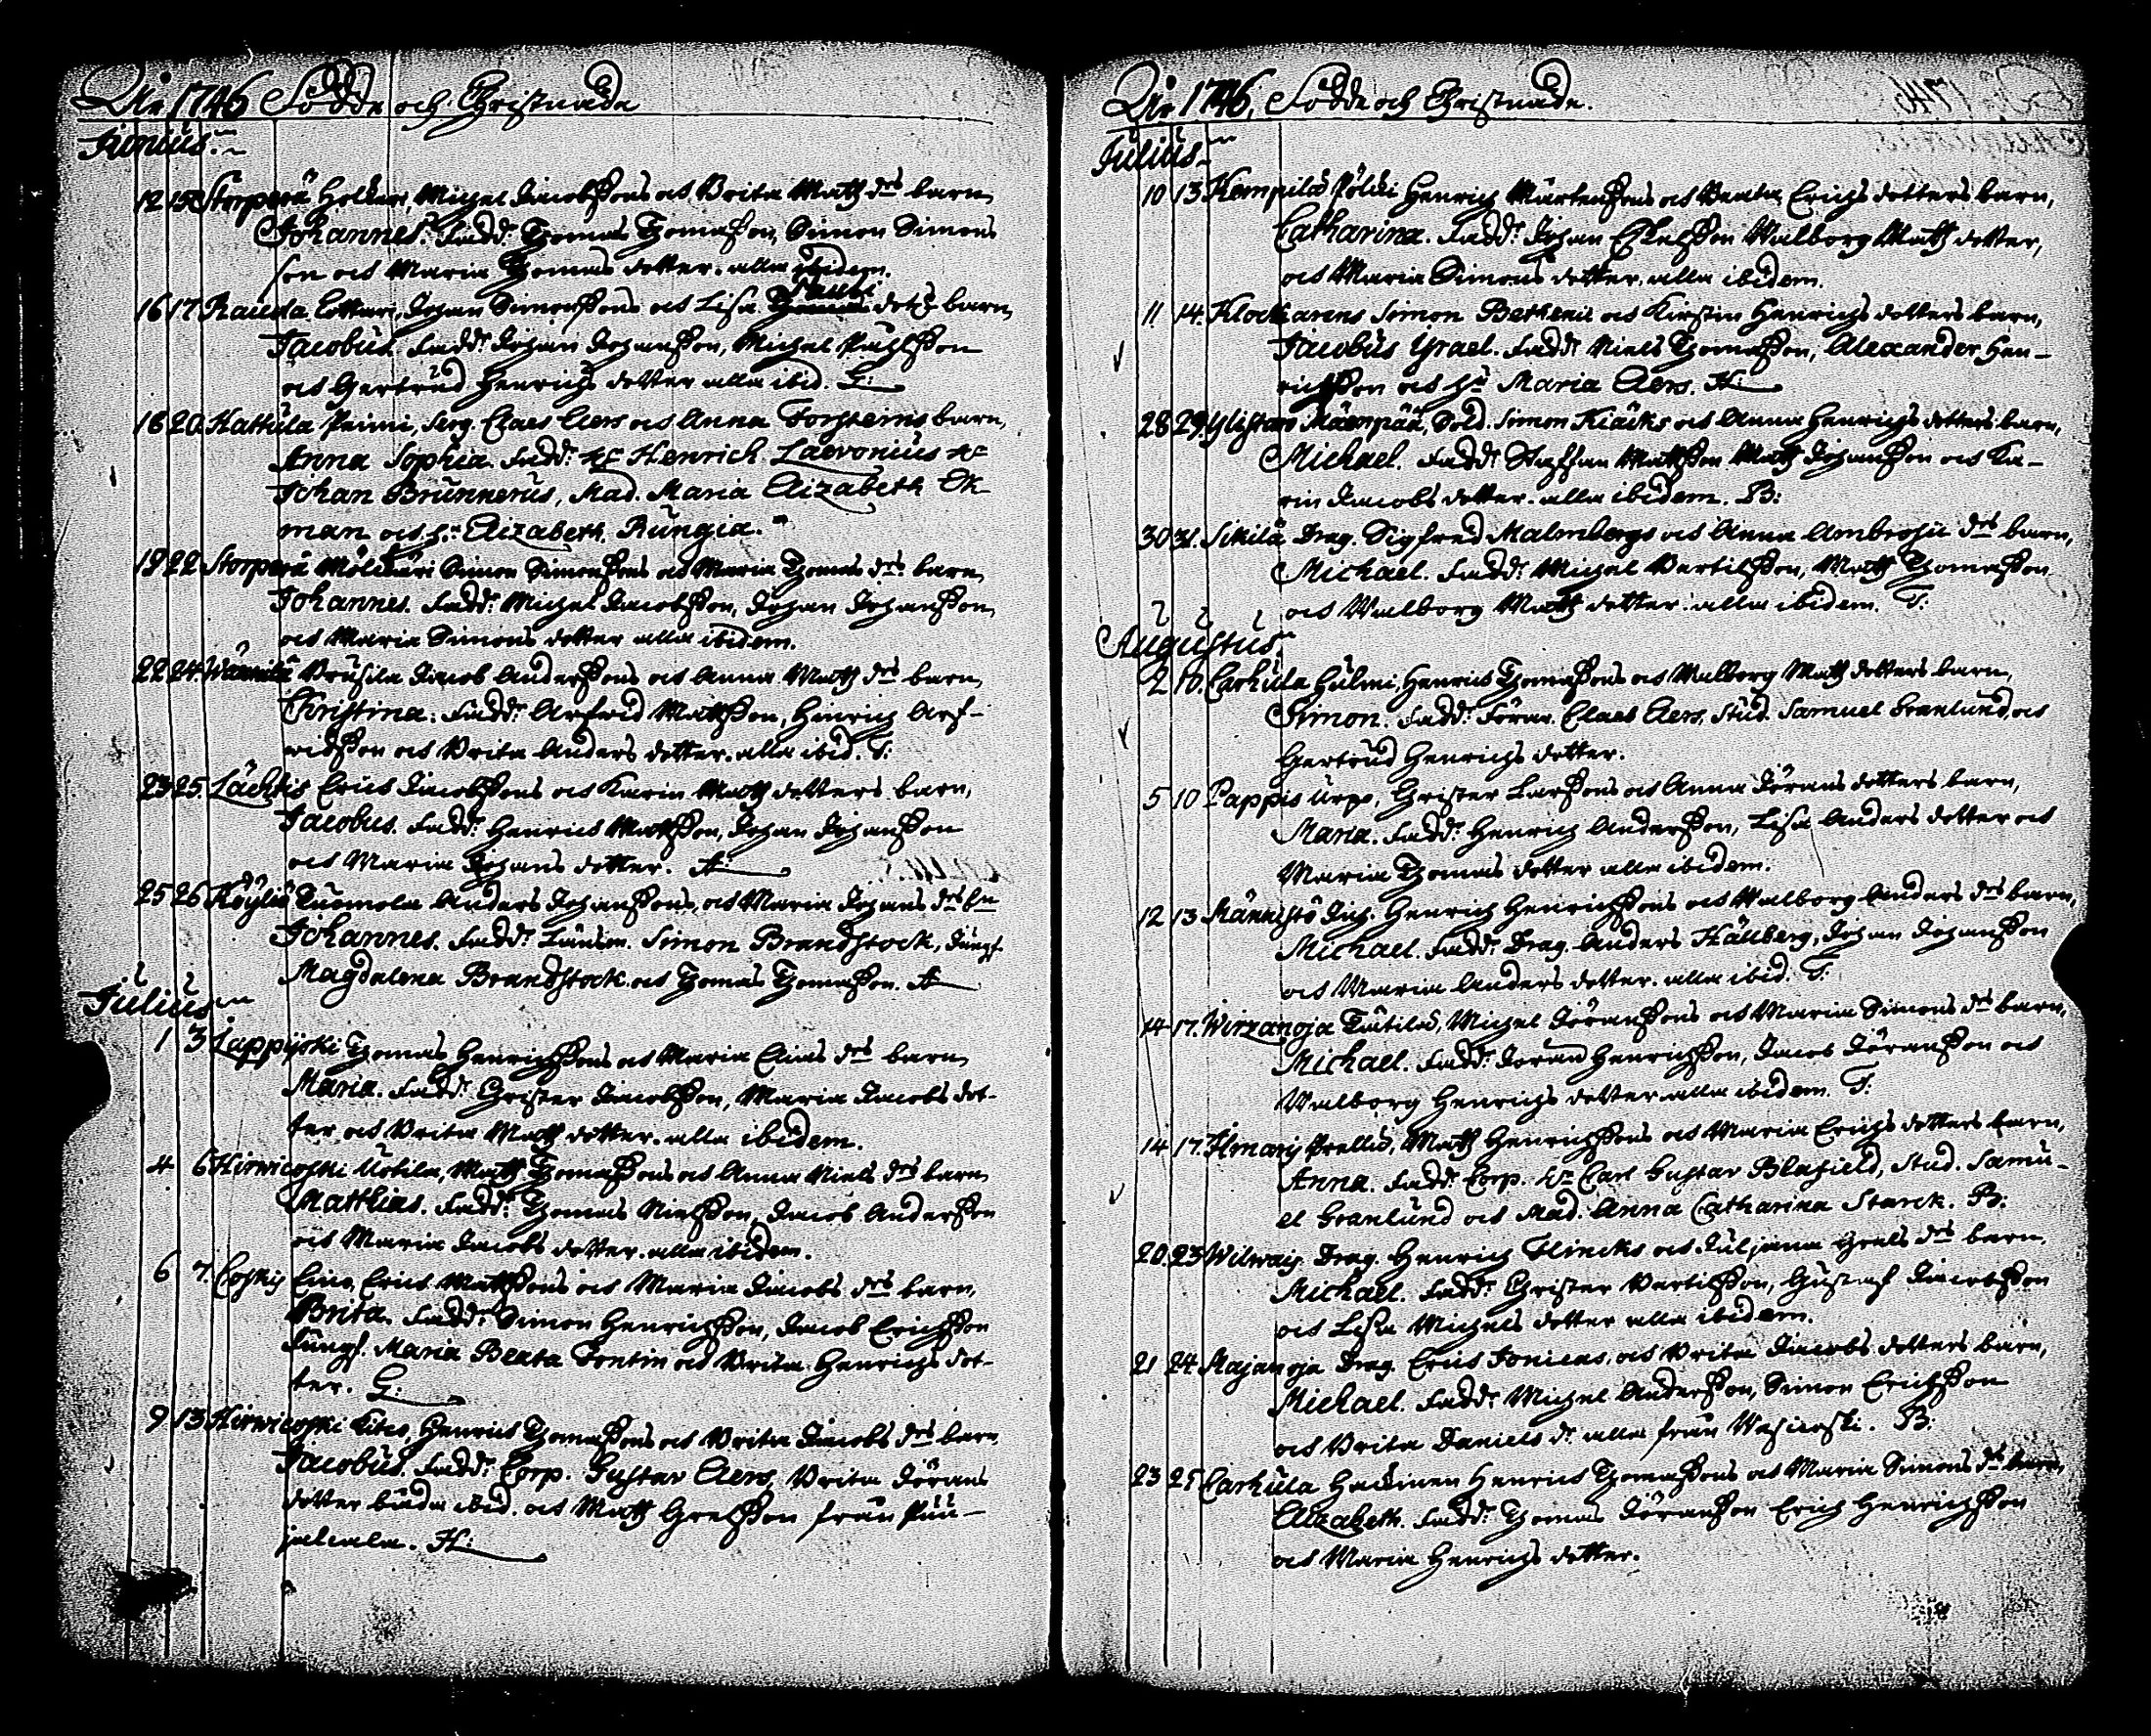 Åhr 1746 Födde och Christnade
Junius.
12 15 Storperä Holkeri, Michel Jacobssons och Brita Matts drs barn,
Johannes. Fadd: Thomas Thomasson, Simon Simons
son och Maria Thomas dotter. alla ibidem.
Pauls
16 17 Rauda Cottari, Johan Simonssons och Lisa Thomas dotrs barn,
Jacobus. Fadd: Johan Johansson, Michel Påhlsson
och Gertrud Henrichs dotter alla ibid. G:
18 20 Kattula Primi, Serg. Claes Aers och Anna Forssteins barn,
Anna Sophia. Fadd: Hr Henrich Laevonius Hr
Johan Brunnerus, Mad. Maria Elizabeth Ek
man och h: Elizabeth Rungia.
19 22 Storperä Mölkäri Simon Simonssons och Maria Thomas drs barn,
Johannes. Fadd: Michel Jacobsson, Johan Johansson,
och Maria Simons dotter alla ibidem.
22 24 Wännilä Prusila Jacob Anderssons och Anna Matts drs barn,
Christina. Fadd: Arfvid Mattsson, Hinrich Arf-
vidsson och Brita Anders dotter. alla ibid. T:
23 25 Lächtis Erics Jacobssons och Karin Matts dotters barn,
Jacobus. Fadd: Henrich Mattsson, Johan Johansson
och Maria Johans dotter. A:
25 26 Köyliö Tuomola Anders Johanssons, och Maria Johans drs bn
Johannes. Fadd: Länsm. Simon Brandstock, Jungf.
Magdalena Brandstock och Thomas Thomasson. A
Julius
1 3 Lappijoki Thomas Henrichssons och Maria Clas drs barn,
Maria. Fadd: Christer Jacobsson, Maria Jacobs dot-
ter och Brita Matts dotter. alla ibidem.
4 6 Hirwicoski Uotila, Matts Thomassons och Anna Niels drs barn,
Matthias. Fadd: Thomas Nielsson, Jacob Andersson
och Maria Jacobs dotter. alla ibidem.
6 7. Coskis Eino, Erics Mattssons och Maria Jacobs drs barn,
Brita. Fadd: Simon Henrichsson, Jacob Erichsson
Jungf. Maria Beata Fontin och Brita Henrichs dot-
ter. G:
9 13 Hirwicoski Eites, Henrich Thomassons och Brita Jacobs drs barn
Jacobus. Fadd: Corp. Gustav Aers, Brita Jörans
dotter båda ibid. och Matts Grelsson från Puu-
jalcala. H:
Åhr 1746, Födde och Christnade.
Julius
10 13 Kempilä Pölcki Henrich Mårtenssons och Beata Erichs dotters barn,
Catharina. Fadd: Johan Eskelsson Walborg Matts dotter,
och Maria Simons dotter. alla ibidem.
11 14. Klockarens Simon Bethenii och Kirstin Henrichs dotters barn,
Jacobus Ysrael. Fadd: Niels Thomasson, Alexander Hen-
richsson och hu Maria Aers. H:
28 29 Ylistaro Mäenpää, Sold. Simon Kiäcks och Anna Henrichs dotters barn,
Michael. Fadd: Staffan Mattsson Matts Johansson och Ka-
rin Jacobs dotter. alla ibidem. B:
30 31. Sikilä Drag. Sigfred Malmbergs och Anna Ambrosii drs barn,
Michael. Fadd: Michel Bertilsson, Matts Thomasson
och Walborg Matts dotter. alla ibidem. T:
Augustus
2 10. Carhula Hulmi, Henrics Thomassons och Walborg Matts dotters barn,
Simon. Fadd: Förar. Claes Aers, Stud. Samuel Granlund, och
Gertrud Henrichs dotter.
5 10 Pappis Urpo, Christer Larssons och Anna Jörans dotters barn,
Maria. Fadd: Henrich Andersson, Lisa Anders dotter och
Maria Thomas dotter alla ibidem.
12 13 Männistö Inh. Henrich Henrichssons och Walborg Anders drs barn,
Michael. Fadd: Drag. Anders Hällberg, Johan Johansson
och Maria Anders dotter. alla ibid. T:
14 17. Wirzanoja Tutila, Michel Jöranssons och Maria Simons drs barn,
Michael. Fadd: Joran Henrichsson, Jacob Jöransson och
Walborg Henrichs dotter alla ibidem. T:
14 17. Ilmarj Prellu, Matts Henrichssons och Maria Erichs dotters barn,
Anna. Fadd: Corp. Hr Carl Gustav Blafield, Stud. Samu-
el Granlund och Mad. Anna Catharina Starck. B:
20. 23 Wilwais Drag. Henrich Flincks och Juljana Grels drs barn,
Michael. Fadd: Christer Bertilsson, Gustaf Jacobsson
och Lisa Michels dotter alla ibidem.
21 24 Majanoja Drag. Erics Jonicas och Brita Jacobs dotters barn,
Michael. Fadd: Michel Andersson, Simon Erichsson
och Brita Daniels dr alla från Wasicoski. B:
23 25 Carhula Hackinen Henrics Thomassons och Maria Simons drs barn,
Elizabeth. Fadd: Thomas Jöransson Erich Henrichsson
och Maria Henrichs dotter.